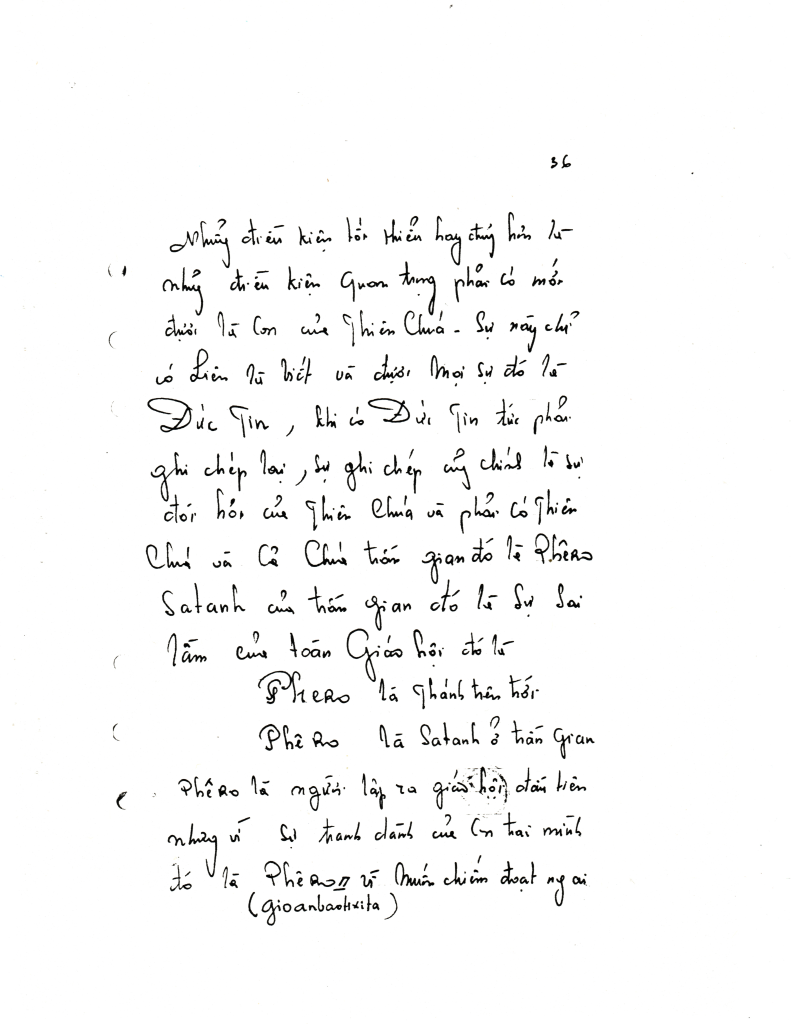 36
Những điều kiện tối thiểu hay đúng hơn là
những điều kiện Quan trọng phải có mới
được là Con của Thiên Chúa - Sự này chỉ
có Liên là biết và được Mọi sự đó là
Đức Tin, khi có Đức Tin tức phải
ghi chép lại, sự ghi chép cũng chính là sự
đòi hỏi của Thiên Chúa và phải có Thiên
Chúa và Cả Chúa trần gian đó là Phêro
Satanh của trần gian đó là Sự Sai
lầm của toàn Giáo hội đó là
Phero là Thánh trên trời
Phêro là Satanh ở trần Gian
Phêro là người lập ra giáo hội đầu tiên
nhưng vì sự tranh dành của Con trai mình
đó là Phêro II vì Muốn chiếm đoạt ngai
(gioanbaotixita)